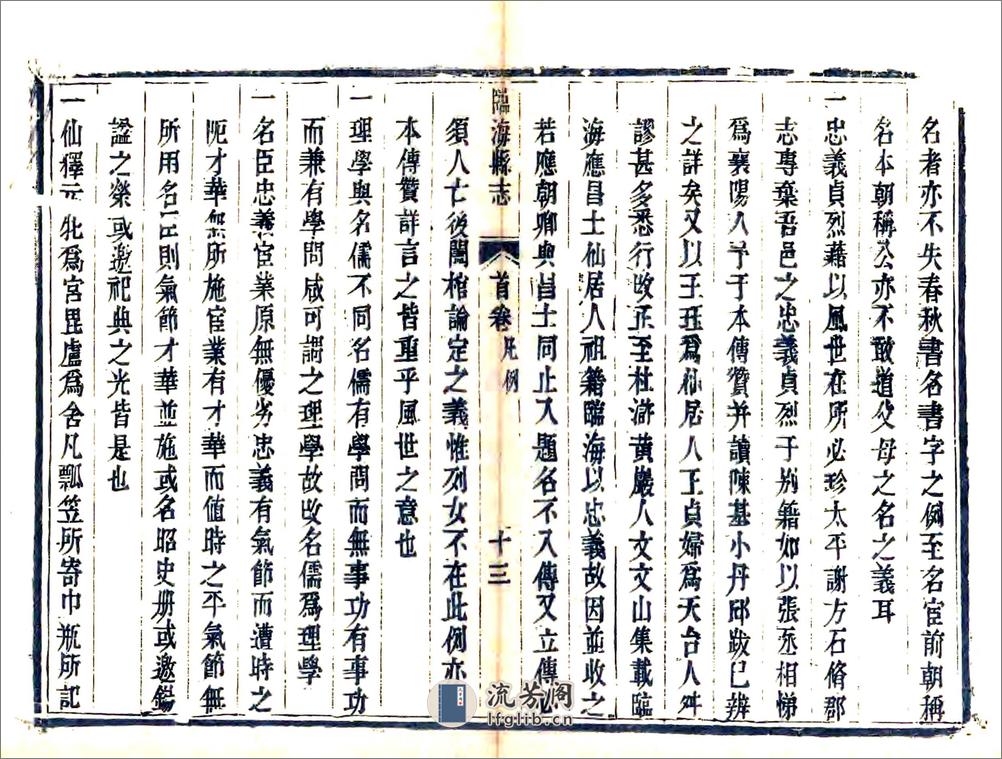 名者亦不失春秋書名書字之例至名宦前朝稱
名本朝稱公亦不敢道父母之名之義耳
一忠義貞烈藉以風世在所必珍太平謝方石脩郡
志專棄吾邑之忠義貞烈于别籍如以張丞相悌
爲襄陽人予于本傳贊并讀陳基小丹邱跋已辨
之詳矣又以王珏爲仙居人王貞婦爲天台人舛
謬甚多悉行改正至杜滸黄巖人文文山集載臨
海應昌士仙居人祖籍臨海以忠義故因並收之
若應朝卿與昌士同止入題名不入傳又立傳必
臨海縣志
首卷
凡例
十三
須人亡後闔棺論定之義惟列女不在此例亦
本傳贊詳言之皆重乎風世之意也
一理學與名儒不同名儒有學問而無事功有事功
而兼有學問咸可謂之理學故改名儒爲理學
一名臣忠義宦業原無優劣忠義有氣節而遭時之
阨才華無所施宦業有才華而値時之平氣節無
所用名臣則氣節才華並施或名昭史册或邀錫
諡之榮或邀祀典之光皆是也
一仙釋元牝爲宫毘盧爲舍凡瓢笠所寄巾瓶所記
流芳阁
lfglib.cn